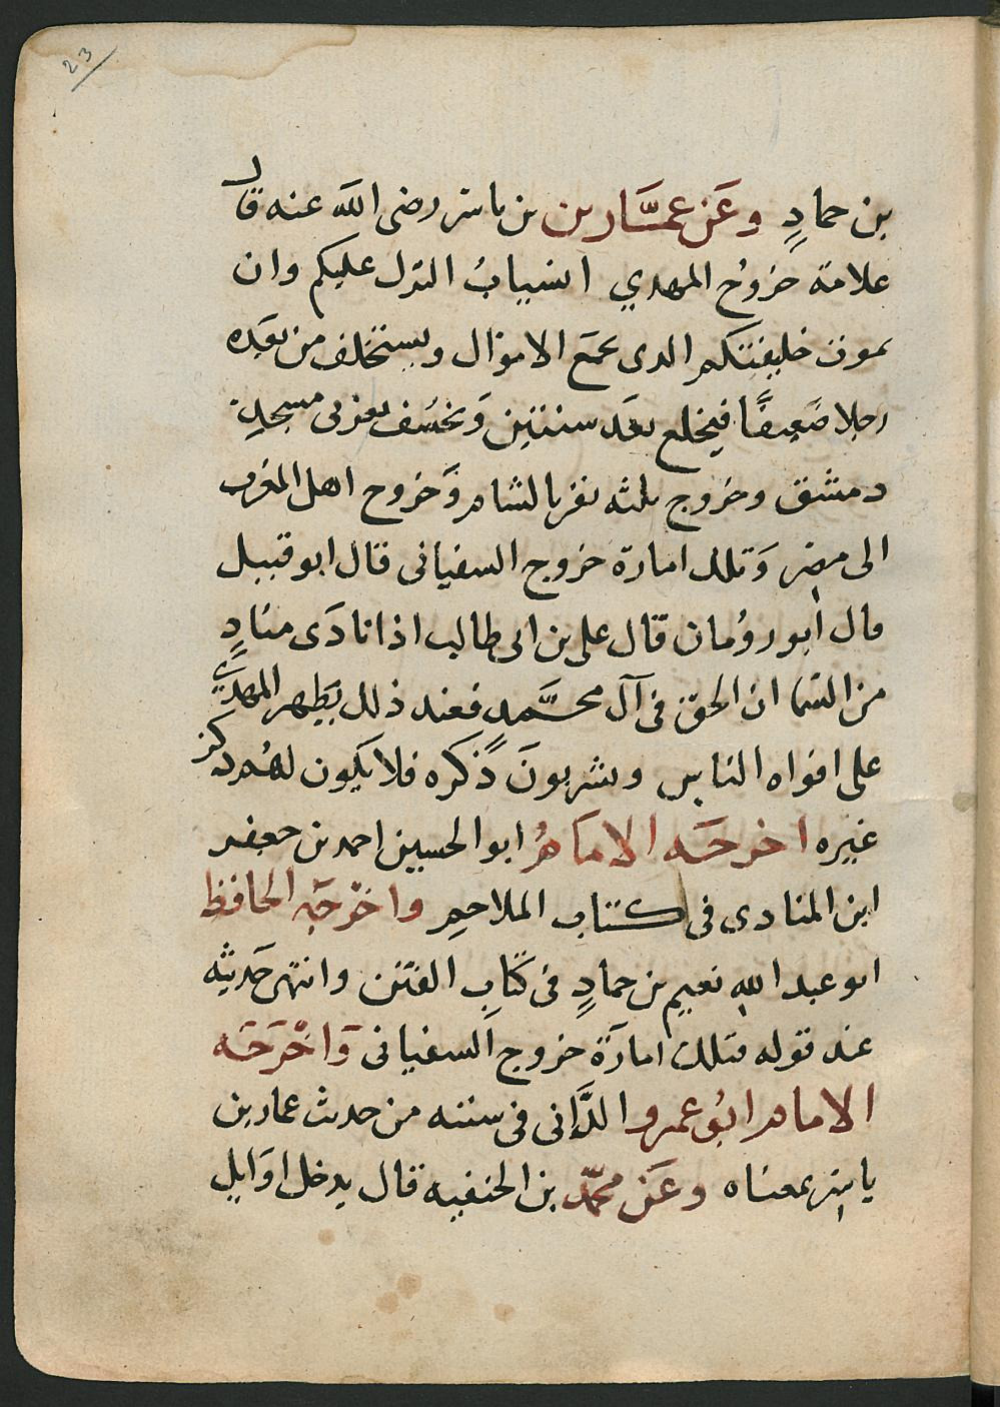 23
بن حمادٍ وعَن عمَّار بن بن ياسر رضى الله عنه قال
علامة خروُج المهدي انسيابُ الترك عليكم وان
يموت خليفتكم الدى يجمَع الاموَال ويستخلف من بعَده
رجلا ضَعيفًا فيخلع بعَد سنتين وَيخسُف بغربى مسجدِ
دمشق وخروج ثلثه نفر بالشام وَخروح اهل المغرب
الى مصر وَتلك امارة خروج السفيانى قال ابو قبيل
قال أبو روُمان قال على بن ابى طالب اذا نادَى منادٍ
من السما ان الحق فى آل محمَّد فعند ذلك يظهر المهدي
على افواه الناس ويشربونَ ذكره فلا يكون لهُم ذكر
غيره اخرجَه الامَامُ ابو الحسين احمد بن جعفر
ابن المنادى فى كتاب الملاحم واخرجَه الحافظ
ابو عبد الله نعيم بن حمادٍ فى كتابِ الفتَن وانتهى حَديثه
عند قوله فتلك امارَة خروج السفيانى وَاخْرَجَه
الامام ابُو عمرو الدَّانى فى سننه من حديث عمار بن
ياسر بمعناه وعَن محمّد بن الحنفيه قال يدخل اوَايل